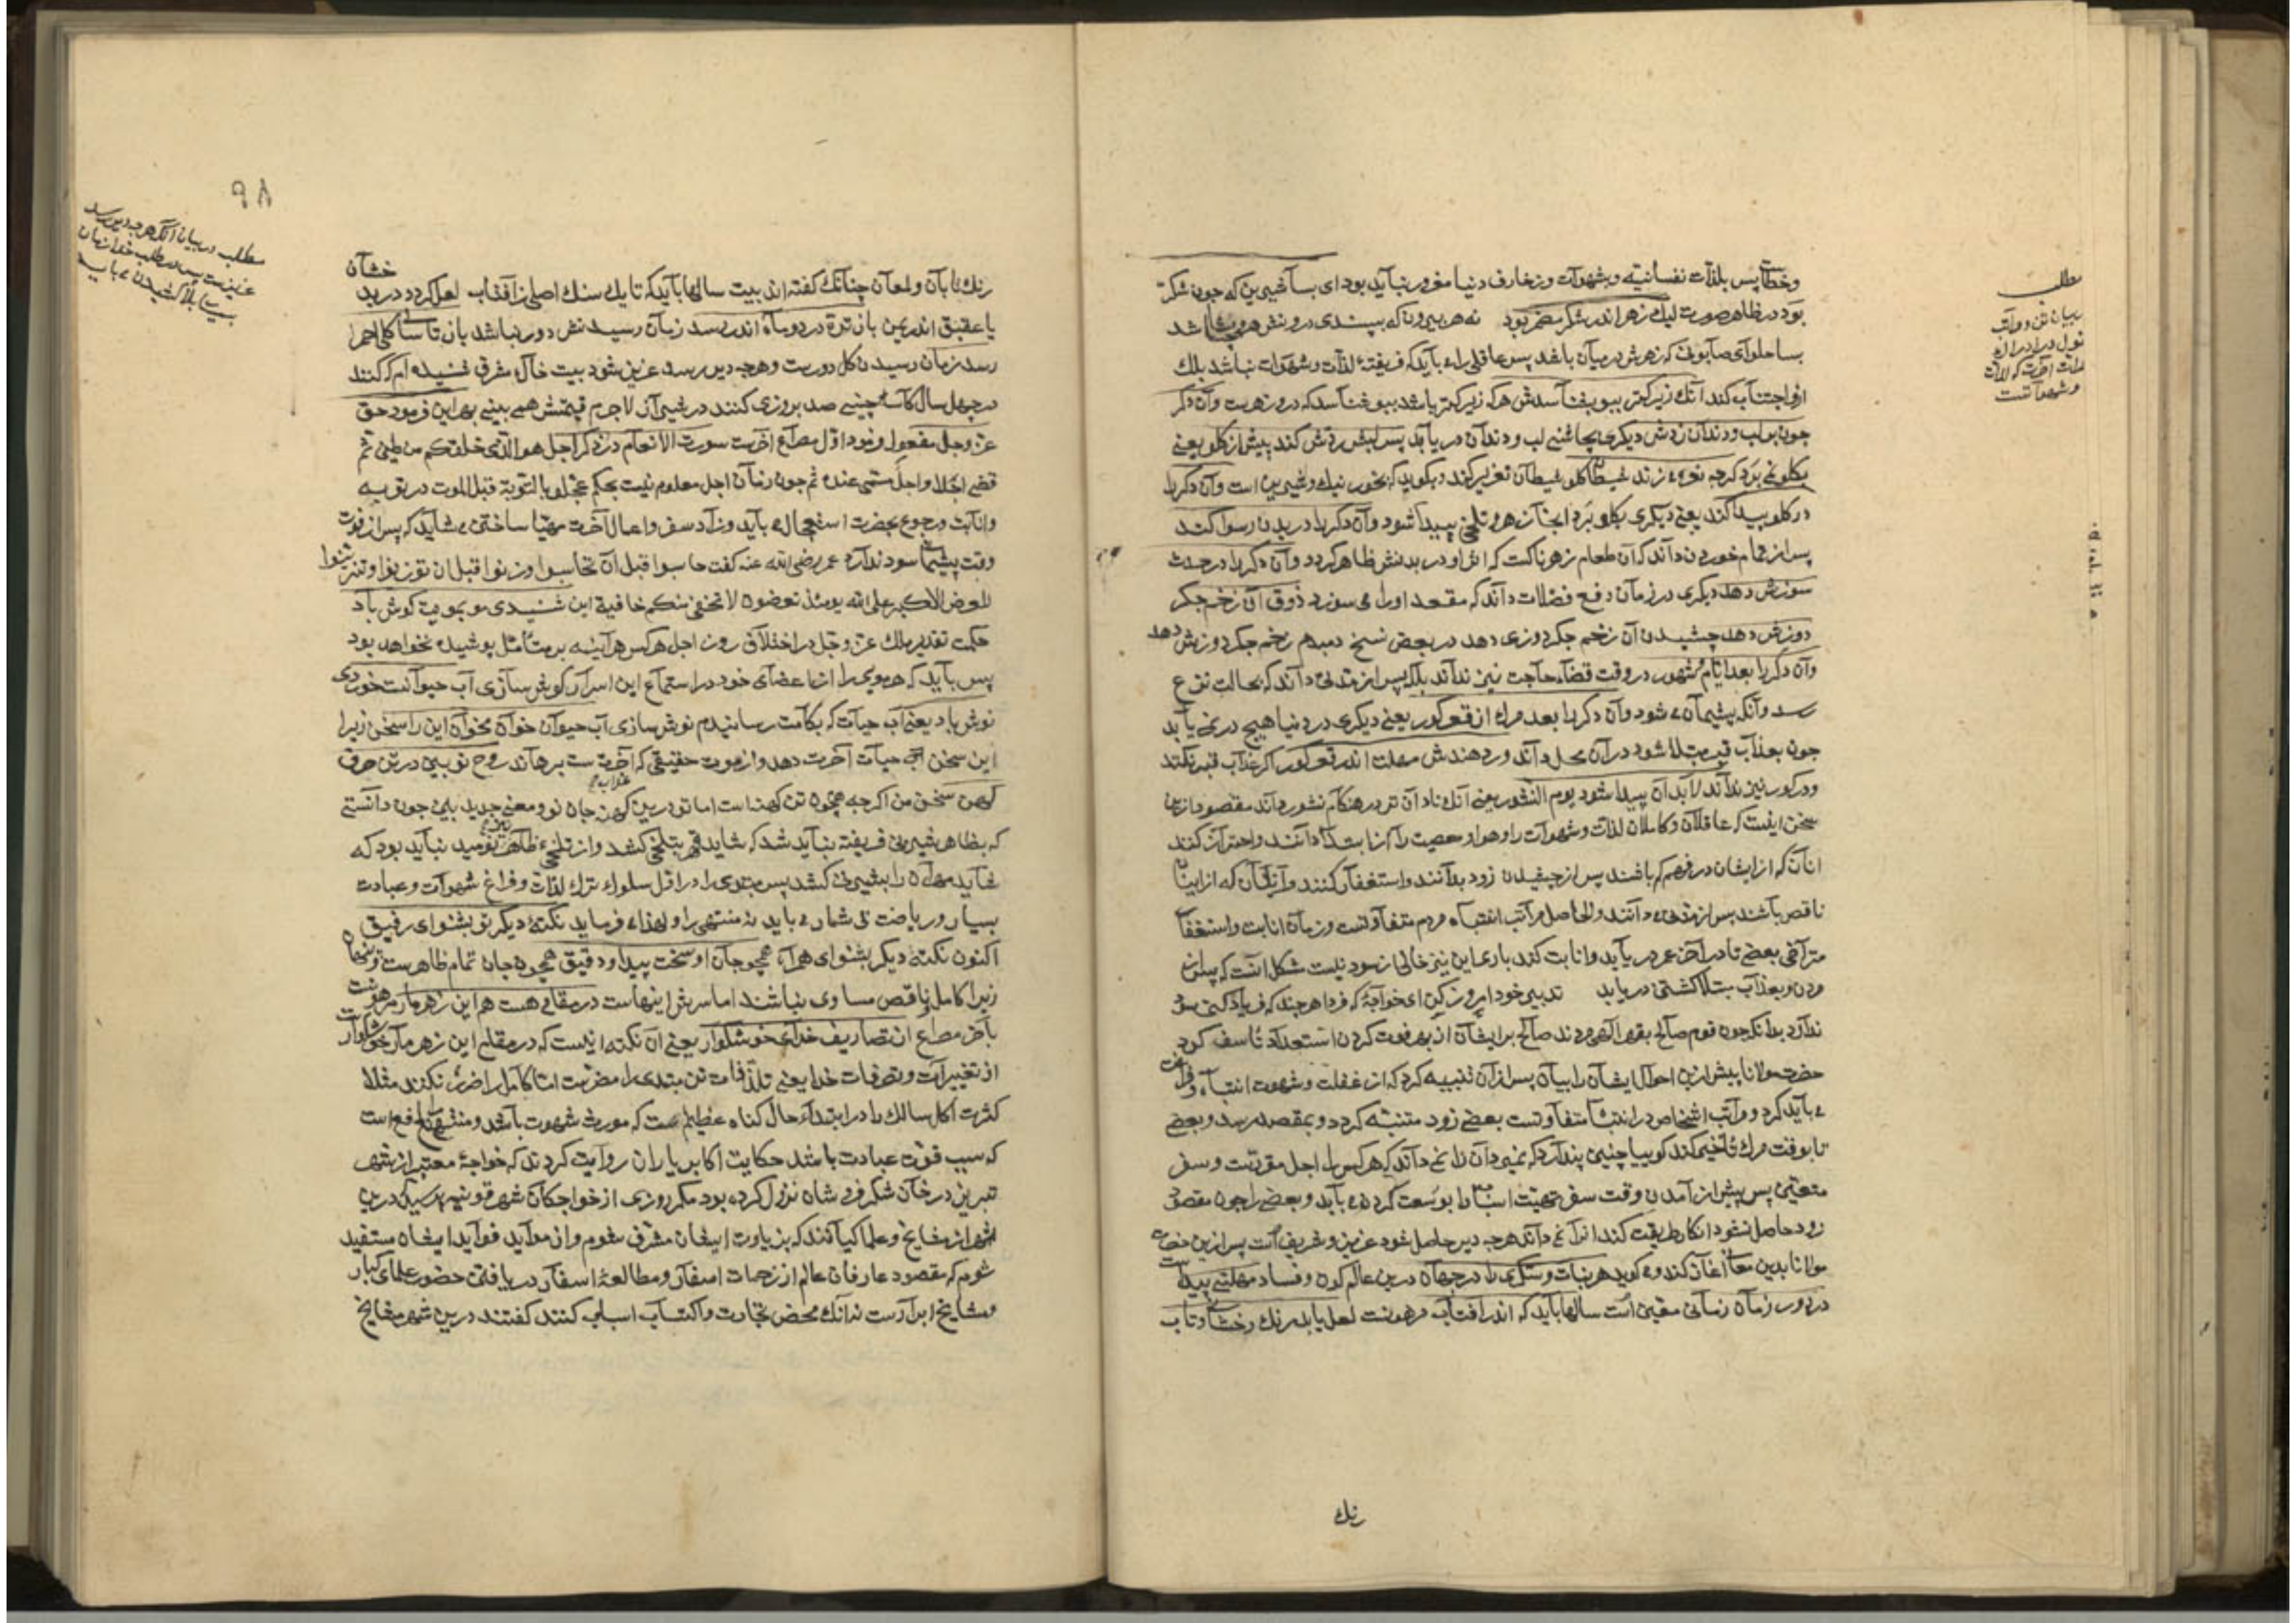 وخطا پس بلذات نفسانیّه وشهوات وزخارف دنیا مغرور نباید بود ای بسا شیرین که چون شکر
بود در ظاهر صورت لیك زهر اندر شکر مضمر بود نه هر بیرون که بپسندی درونش همچنان باشد
بسا حلوای صابونی که زهرش درمیان باشد پس عاقل را باید که فریفتهٔ لذات وشهوات نباشد بلك
ازو اجتناب کند آنك زیرکتر ببو بشناسدش هرکه زیرکتر باشد ببو شناسد که درو زهرست وآن دکر
چون بر لب ودندان زدش دیکری بچاشنی لب ودندان دریابد پس لبش ردّش کند پیش از کلو یعنی
بکلو نمی برد کرچه نعره زند شیطان کلو شیطان تعزیر کند وبکوید که بخور نیك وشیرین است وآن دکر را
در کلو پیدا کند یعنی دیکری بکلو برد آنجا زهر وتلخی پیدا شود وآن دکر را در بدن رسوا کند
پس از طعام خوردن داند که آن طعام زهرناکست که اثر او در بدنش ظاهر کردد وآن دکر را در حدث
سوزش دهد دیکری در زمان دفع فضلات داند که مقعد او را می سوزد ذوق آن زخم جکر
دوزش دهد چشیدن آن زخم جکردوزی دهد در بعض نسخ دمبدم زخم جکردوزش دهد
وآن دکر را بعد ایّام وشهور در وقت قضاء حاجت نیز نداند بلکه پس از مدتی داند که بحالت نزع
رسد وآنکه پشیمان شود وآن دکر را بعد مرك از قعر کور یعنی دیکری در دنیا هیچ در نمی یابد
چون بعذاب قبر مبتلا شود در آن محل داند ور دهندش مهلت اندر قعر کور اکر عذاب قبر نکنند
ودر کور نیز نداند لابد آن پیدا شود یوم النشور یعنی آنك نادان تر در هنکام نشور داند مقصود ازین
سخن اینست که عاقلان وکاملان لذات وشهوات را وهوا ومعصیت را از ابتدا دانند واحتراز کنند
آنان که از ایشان در فهم کم باشند پس از چشیدن زود بدانند واستغفار کنند وآنان که از اینان
ناقص باشند پس از مدتی دانند والحاصل مراتب انتباه مردم متفاوتست وزمان انابت واستغفار
متراخی بعضی تا در آخر عمر در یابد وانابت کند باری این نیز خالی از سود نیست مشکل آنست که پس از
مردن وبعذاب مبتلا کشتن دریابد تدبیر خود امروز کن ای خواجه که فردا هر چند که فریاد کنی سود
ندارد بدانکه چون قوم صالح بقهر الهی مردند صالح بر ایشان از بهر فوت کردن استعداد تاسف کرد
حضرت مولانا پیش ازین احوال ایشان را بیان پس از آن تنبیه کرد که از غفلت وشهوت انتباه وفراغت
می باید کرد ومراتب اشخاص در انتباه متفاوتست بعضی زود متنبّه کردد وبمقصد رسد وبعضی
تا بوقت مرك تأخیر کند کوییا چنین پندارد که نمیرد آن نادان نمی داند که هر کس را اجل مقررست وسفر
متعین پس پیش از آمدن وقت سفر تهیّت اسباب را بوسعت کردن باید وبعضی را چون مقصود
زود حاصل نشود انکار طریقت کند انرا نمی داند هرچه دیر حاصل شود عزیز وشریف است پس ازین حضرت
مولانا بدین معنی آغاز کند وکوید هر نبات وشکری را در جهان درین عالم کون وفساد مهلتی پیداست
در دور زمان زمانی معین است سالها باید که اندر آفتاب مرهونست لعل یابد رنك رخشان وتاب
رنك
مطلب
ربیان
وشهواتست
٩٨
مطلب در بیان انکه هرچه دیر رسد
عزیزست پس در طلب خدا زمان
بسیار بلا کشیدن می باید
رنك تابان ولمعان چنانك کفته اند بیت سالها باید که تا یك سنك اصلی ز آفتاب لعل کردد در بدخشان
یا عقیق اندر یمن باز تره در دو ماه اندر رسد زمان رسیدنش دور نباشد باز تا سالی کل احمر
رسد زمان رسیدن کل دورست وهرچه دیر رسد عزیز شود بیت خاك مشرق شنیده ام که کنند
در چهل سال کاسهٔ چینی صد بروزی کنند در شیراز لاجرم قیمتش همی بینی بهر این فرمود حق
عزّ وجل مفعول فرمود اوّل مصراع اخرست سورت الانعام در ذکر اجل هو الذی خلقکم من طین ثم
قضی اجلا واجل مسمی عنده ثم چون زمان اجل معلوم نیست بحکم عجلوا بالتوبة قبل الموت در توبه
وانابت ورجوع بحضرت استعجال می باید وزاد سفر واعمال آخرت مهیّا ساختن می شاید که پس از فوت
وقت پشیمانی سود ندارد عمر رضی الله عنه کفت حاسبوا قبل ان تحاسبوا وزنوا قبل ان توزنوا وتزیّنوا
للعرض الاکبر علی الله یومئذ تعرضون لا تخفی منکم خافیة این شنیدی مو بمویت کوش باد
حکمت تقدیر ملك عزّ وجل در اختلاف روز اجل هر کس هر آینه بر متأمل پوشیده نخواهد بود
پس باید که هر مویی را از اعضای خود در استماع این اسرار کوش سازی آب حیوانست خوردی
نوش باد یعنی آب حیات که بکامت رسانیدم نوش سازی آب حیوان خوان مخوان این را سخن زیرا
این سخن آب حیات آخرت دهد واز موت حقیقی که عذاب آخرتست برهاند روح نو بین در تن حرف
کهن سخن من اکرچه همچون تن کهنه است اما تو درین کهن جان نو ومعنی جدید ببین چون دانستی
که بظاهر شیرینی فریفته نباید شد که شاید بتلخی کشد واز تلخی ظاهر نیز نومید نباید بود که
شاید مهلتی آن را بشیرینی کشد پس مبتدی را در اوّل سلوك ترك لذات وفراغ شهوات وعبادت
بسیار وریاضت بی شمار می باید نه منتهی را ولهذا می فرماید نکتهٔ دیکر تو بشنو ای رفیق
اکنون نکته دیکر بشنو ای همراه همچو جان او سخت پیدا ودقیق همچون جان تمام ظاهرست وپنهان
زیرا کامل وناقص مساوی نباشند اما سرش اینهاست در مقامی هست هم این زهر مار مرهونست
باخر مصراع از تصاریف خدای خوشکوار یعنی آن نکته اینست که در مقام این زهر مار خوشکوارست
از تغییرات وتصرفات خدا یعنی تلذذات تن مبتدی را مضرتست امّا کامل را ضرر نکند مثلا
کثرت اکل سالك را در ابتداء حال کناه عظیم است که مورث شهوت باشد ومنتهی را نافع است
که سبب قوّت عبادت باشد حکایت اکابر یاران روایت کردند که خواجهٔ معتبر از شهر
تبریز در خان شکرفروشان نزول کرده بود مکر روزی از خواجکان شهر قونیه پرسید که درین
شهر از مشایخ وعلما کیانند که بزیارت ایشان مشرف شوم واز مواید فواید ایشان مستفید
شوم که مقصود عارفان عالم از زحمات اسفار ومطالعهٔ اسفار دریافتن حضور علمای کبار
ومشایخ ابرارست نه آنك محض تجارت واکتساب اسباب کنند کفتند درین شهر مشایخ